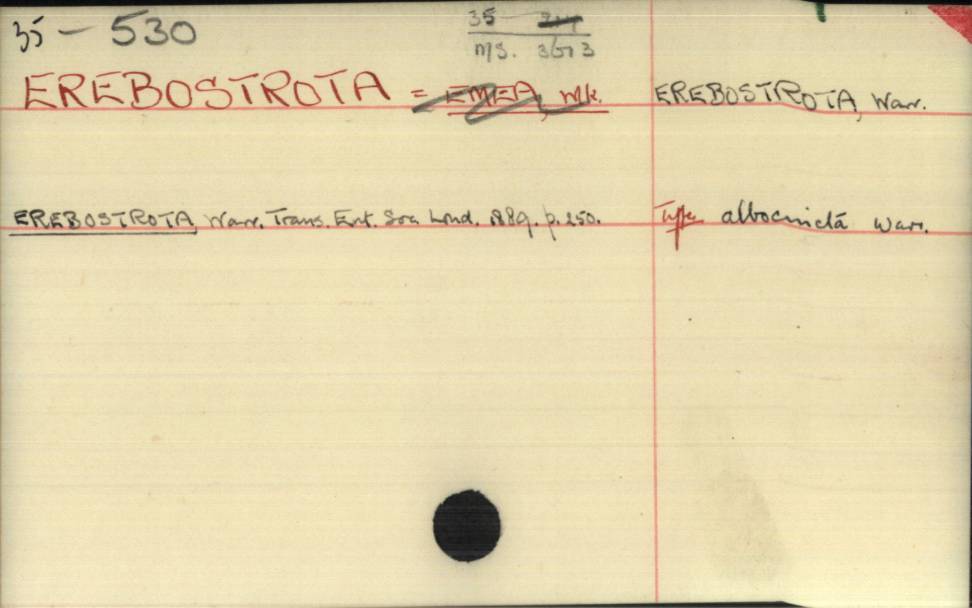 35 - 530
35 - 
M/S. 3673
EREBOSTROTA = EMEA, Wk.
EREBOSTROTA, Warr.
EREBOSTROTA, Warr. Trans. Ent. Soc. Lond. 1889. p. 250.
Type albocincta Warr.